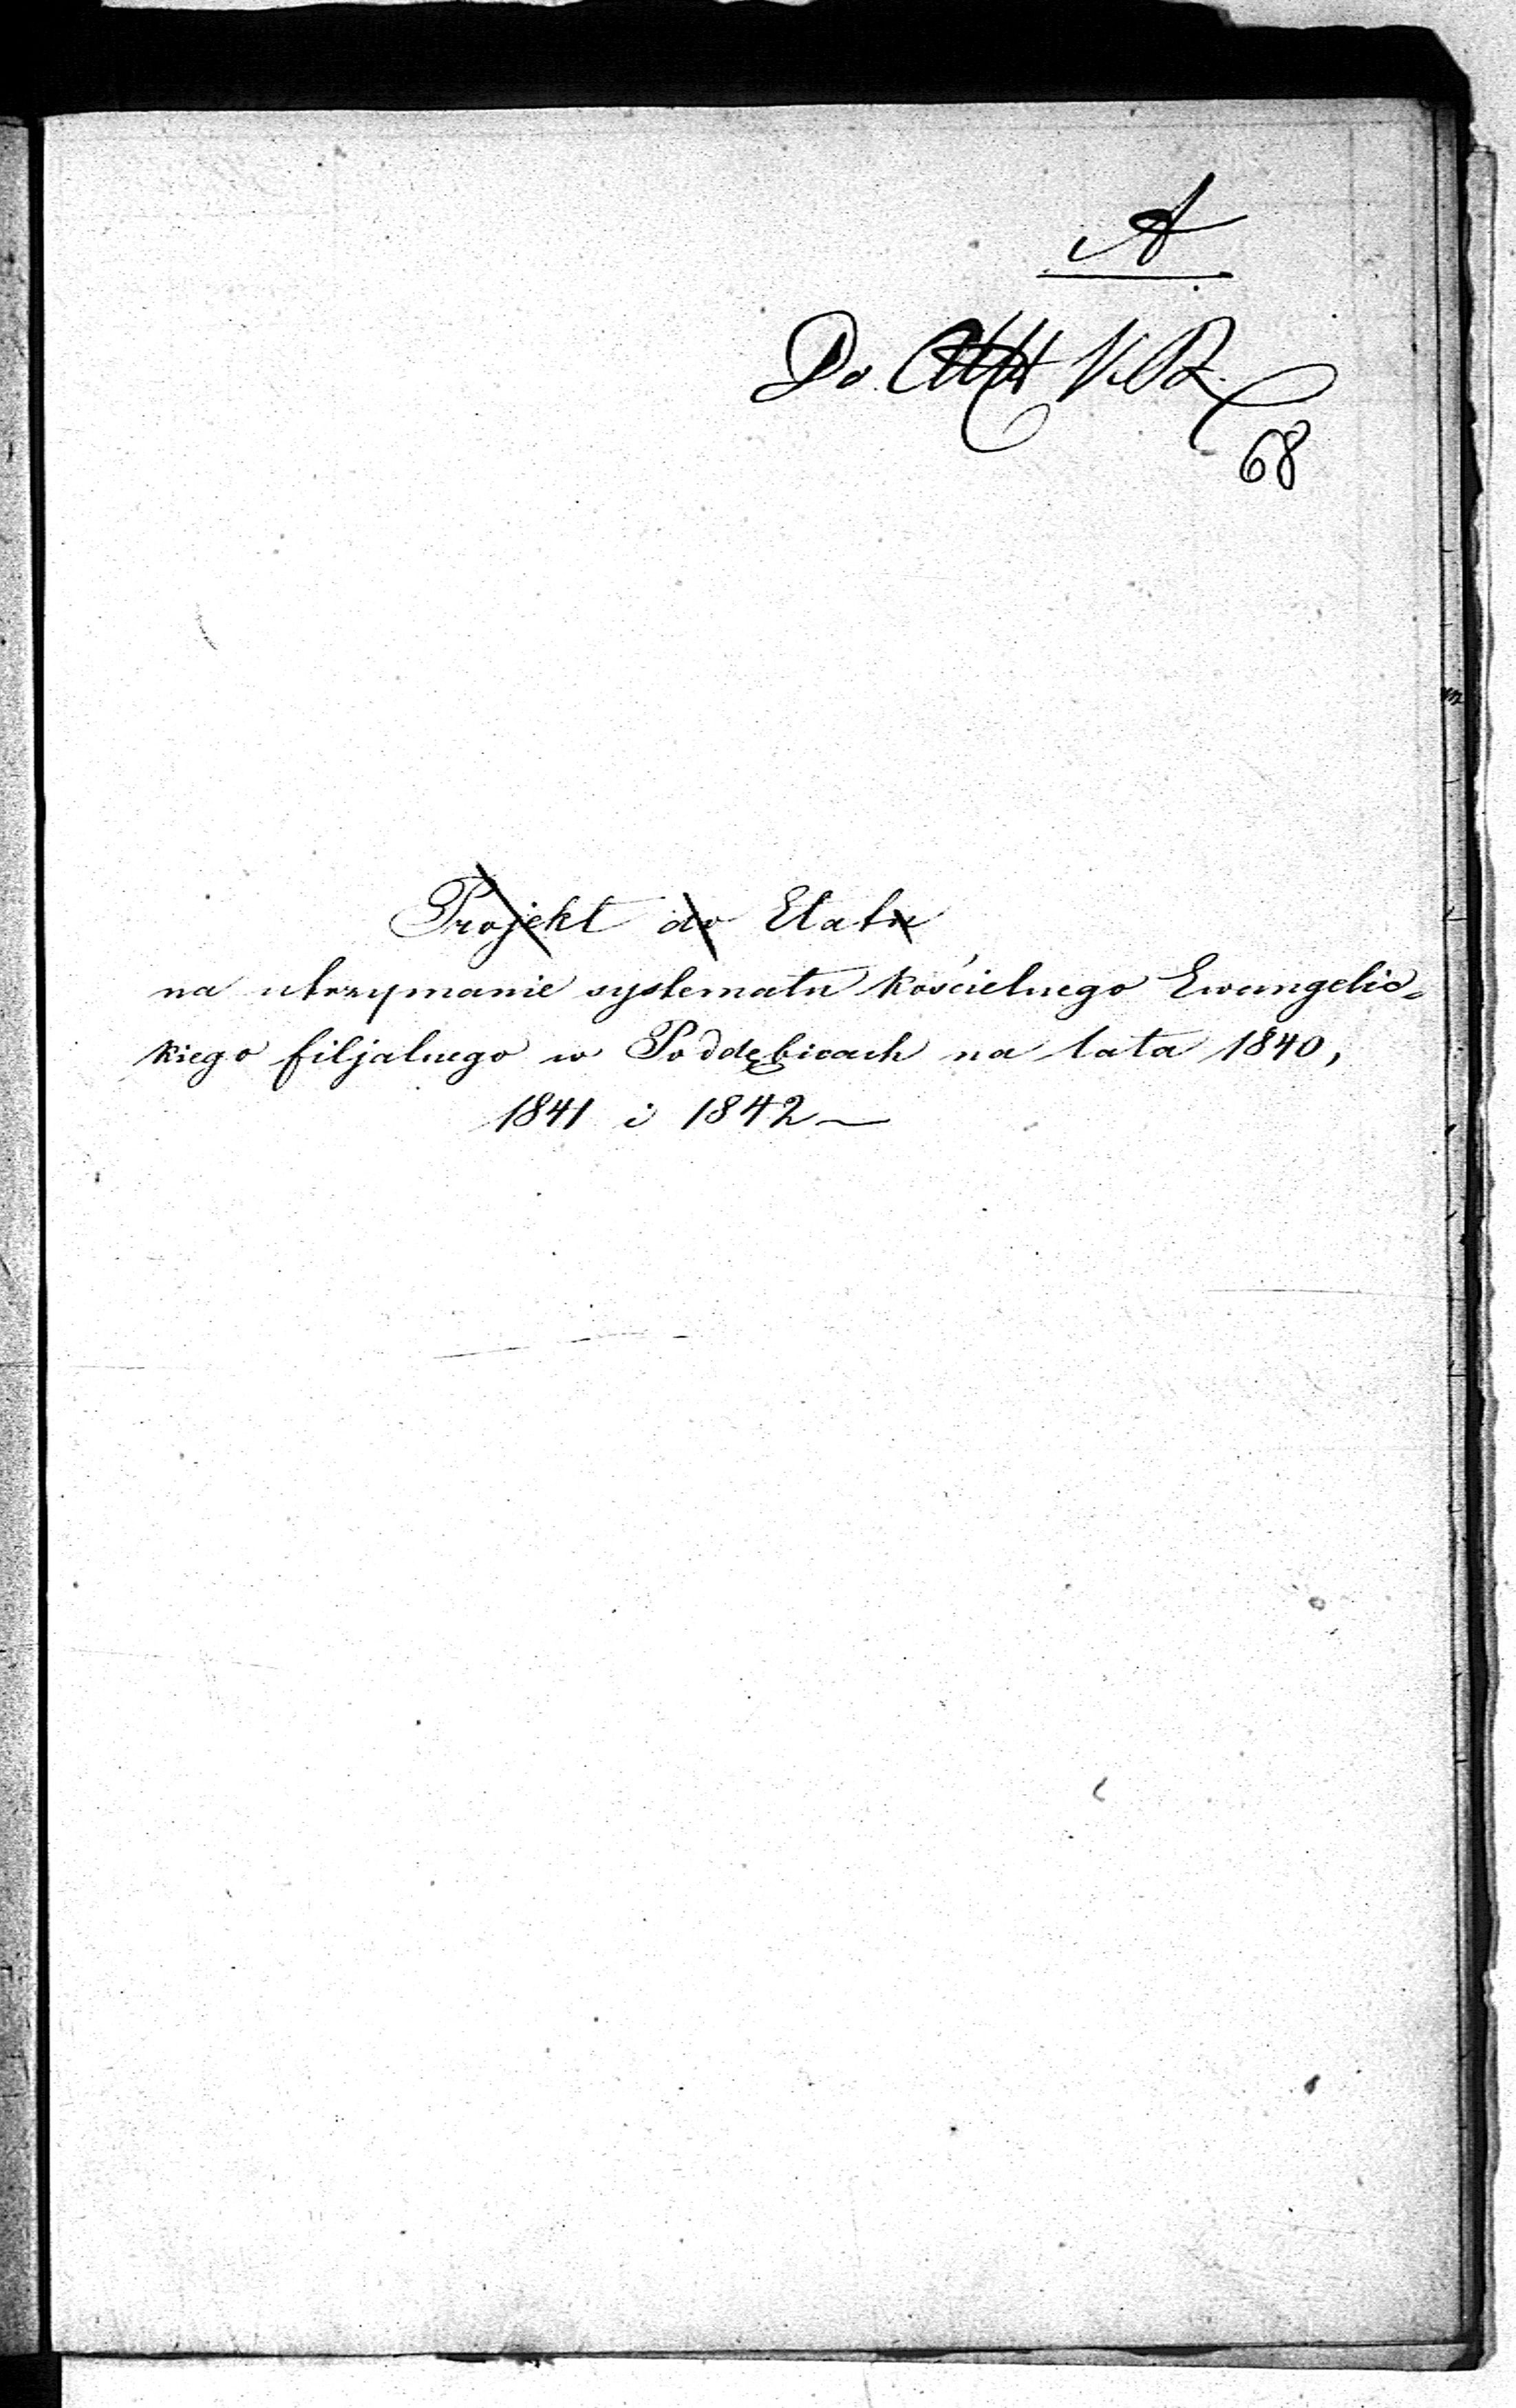 A
Do
68
Projekt do Etatu
na utrzymanie systematu kościelnego Ewangelic=
kiego filjalnego w Poddębicach na lata 1840,
1841 i 1842 —